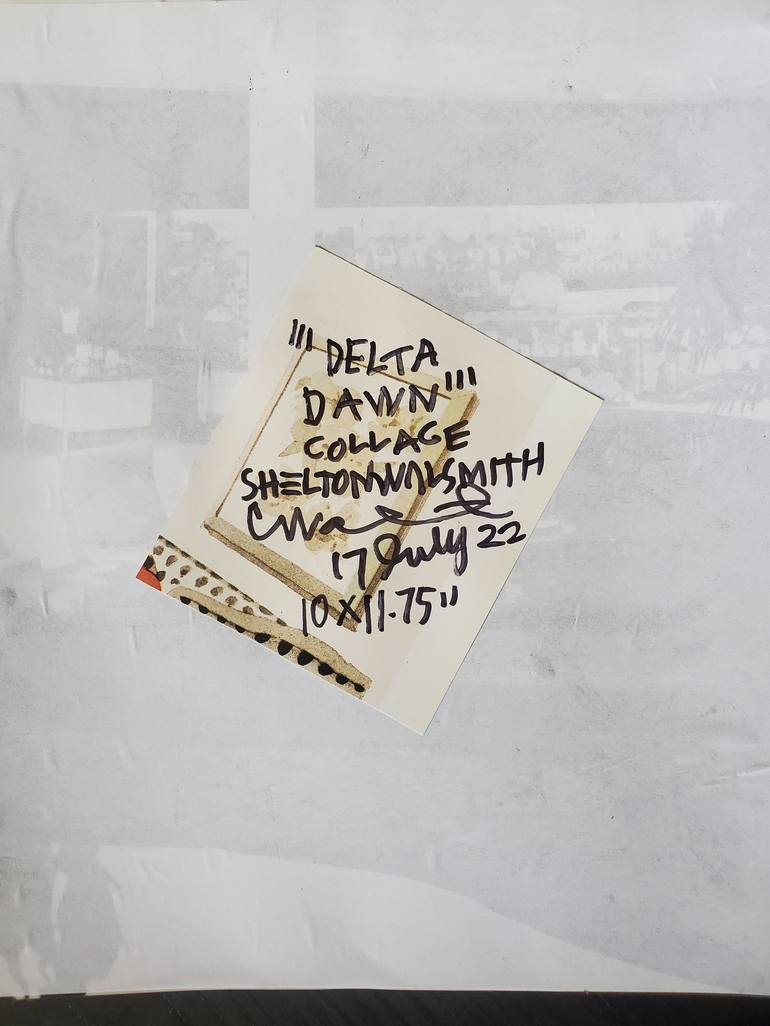 "'DELTA
DAWN"'
COLLAGE
SHELTONWALSMITH
17 July 22
10 X 11.75"